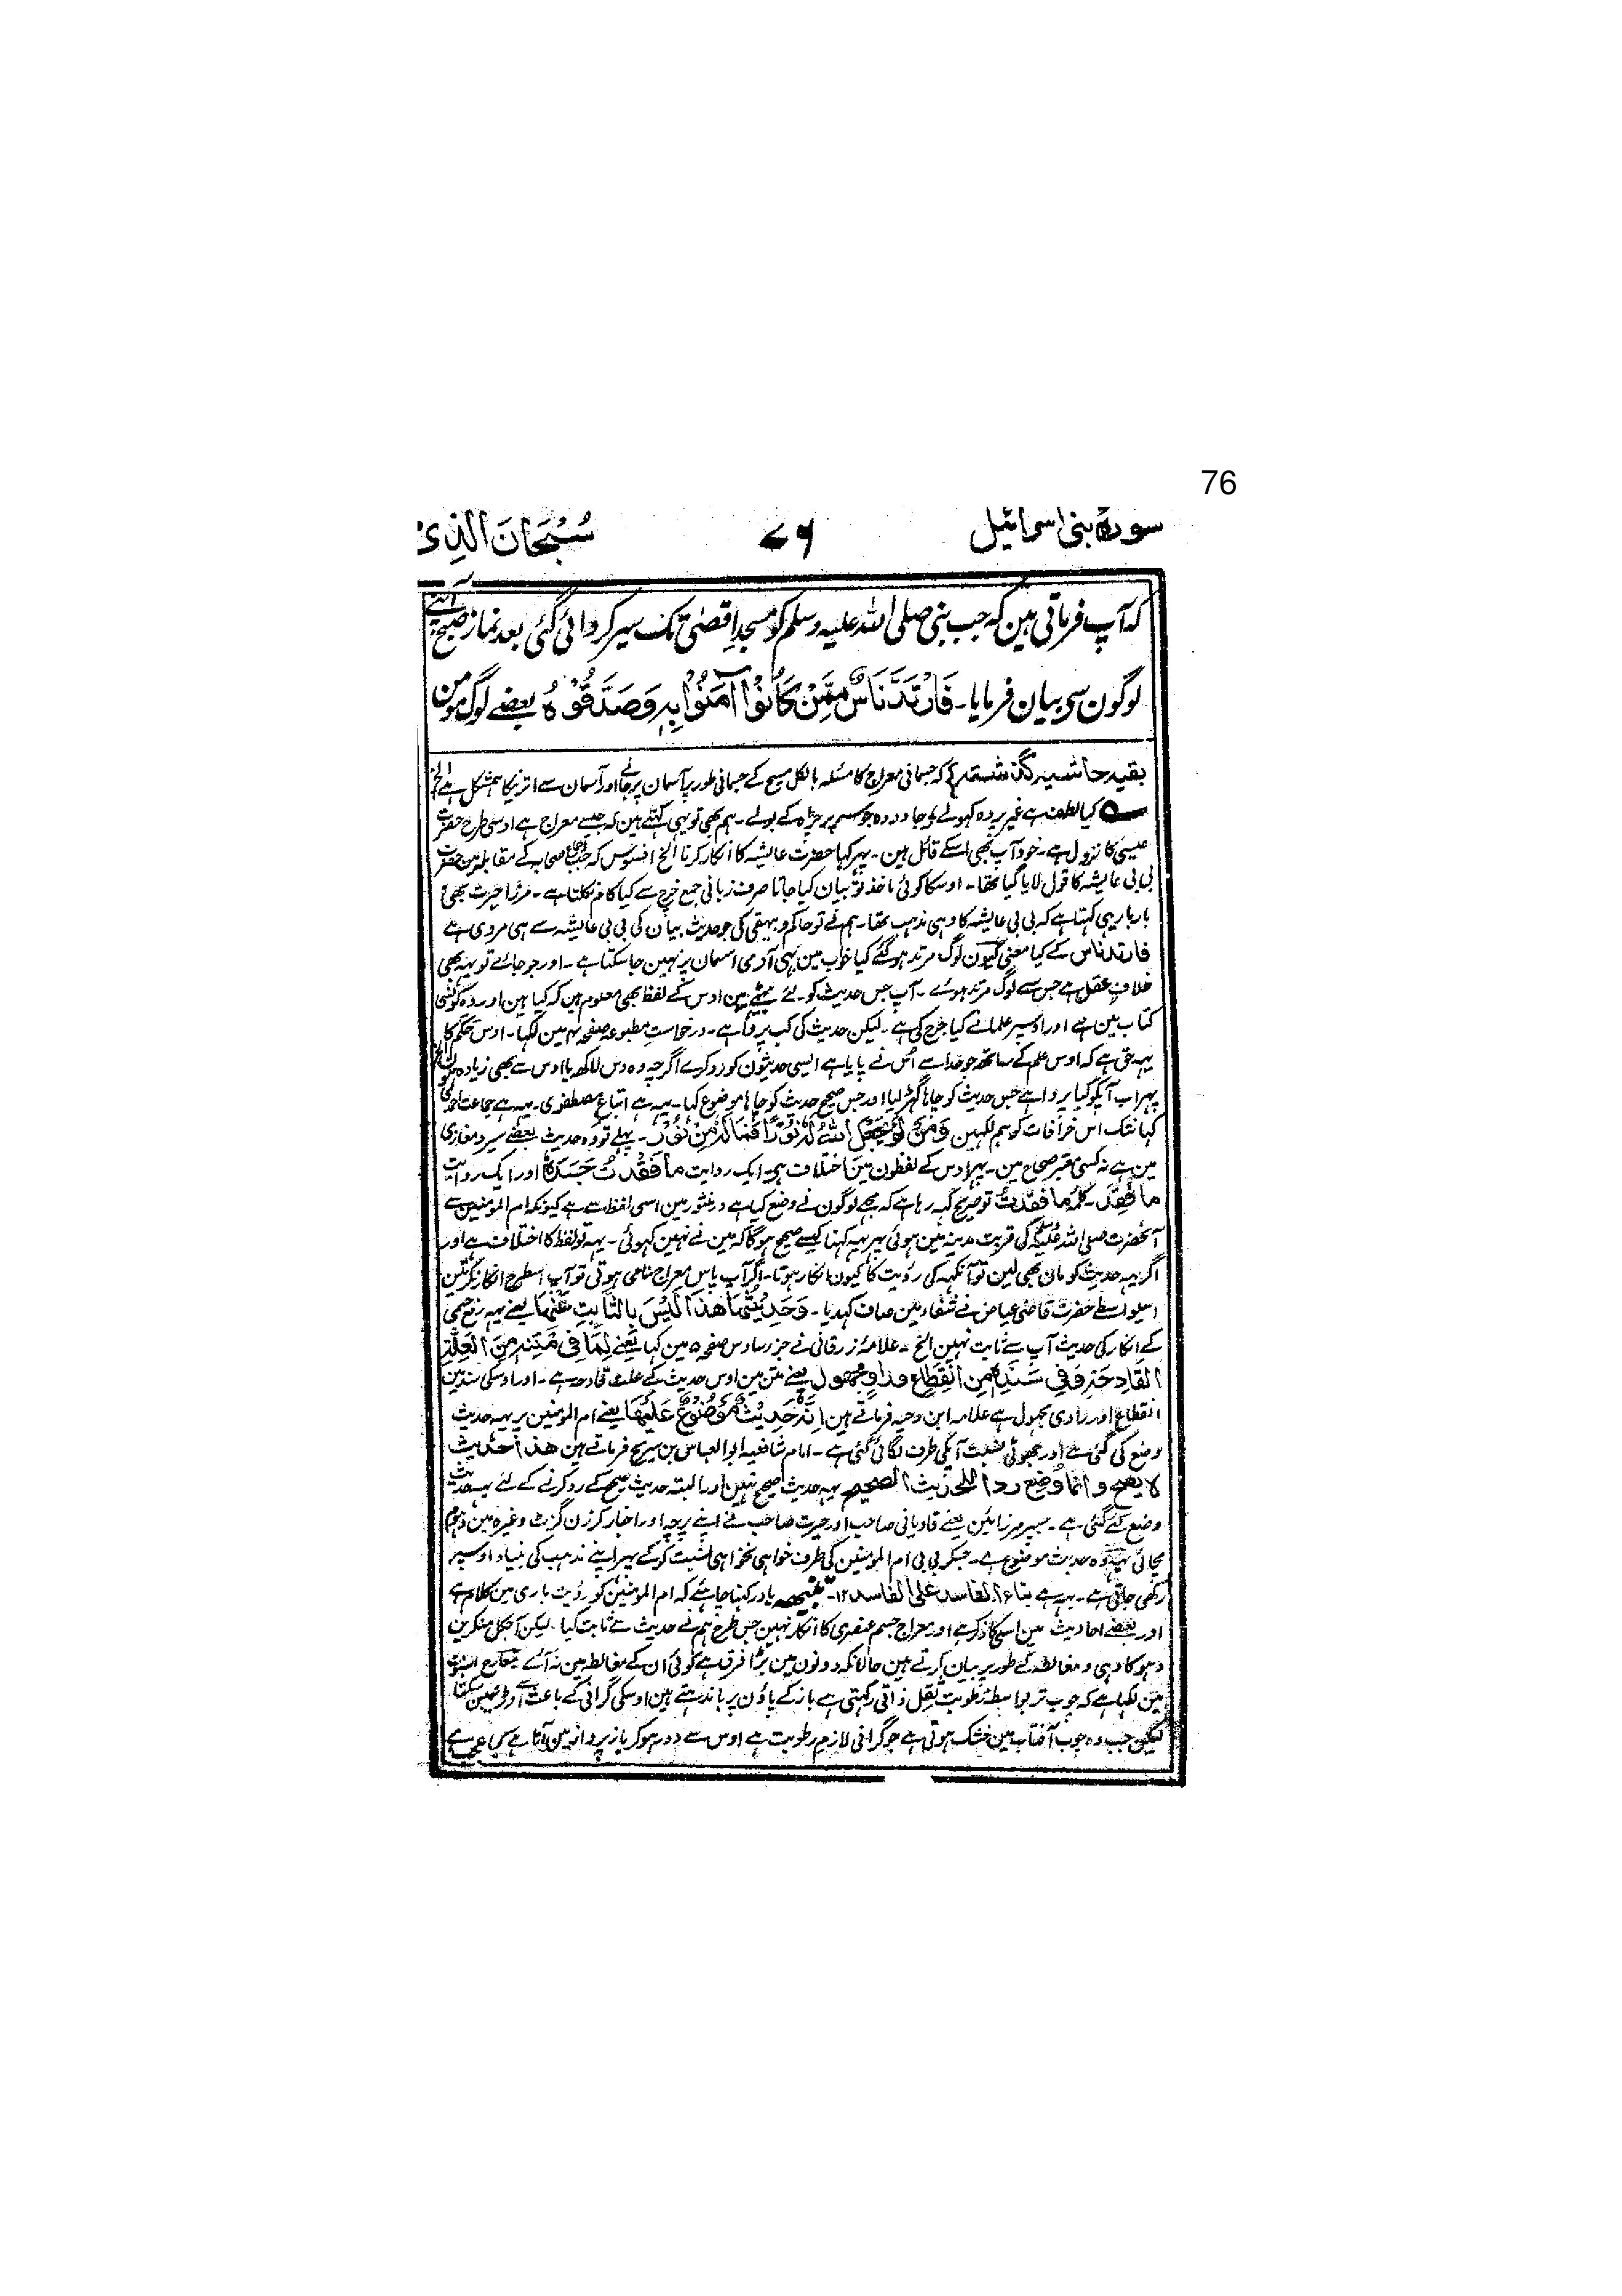 76
سورۂ بنی اسرائیل ۷۶ سُبْحَانَ الَّذِیْ
کہ آپ فرماتی ہین کہ جب بنی صلی اللہ علیہ وسلم کو مسجدِ اقصٰی تک سیر کروائی گئی بعد نماز صبح آپنے
لوگون سی بیان فرمایا۔ فَارْتَدَّ نَاسٌ مِمَّنْ كَانُوْا آمَنُوْا بِہٖ وَصَدَّقُوْہُ بعضے لوگ مومن
بقیہ حاشیہ گذشتہ کہ جسمانی معراج کا مسئلہ بالکل مسیح کے جسمانی طور پر آسمان پر جانے اور آسمان سے اترنیکا ہمشکل ہے الخ
کیا لطف ہے غیر پردہ کہولے جادو وہ جو سر پر چڑہ کے بولے۔ ہم بھی تو یہی کہتے ہین کہ جیسے معراج ہے اوسی طرح حضرت
عیسیٰ کا نزول ہے۔ خود آپ بھی اسکے قائل ہین۔ پہر کہا حضرت عایشہ کا انکار کرنا الخ افسوس کہ جب صحابہ کے مقابلہ مین حضرت
بی بی عایشہ کا قول لایا گیا تھا۔ اوسکا کوئی ماخذ تو بیان کیا جاتا صرف زبانی جمع خرچ سے کیا کام نکلتا ہے۔ مرزا حیرت بھی
بار بار یہی کہتا ہے کہ بی بی عایشہ کا وہی مذہب تھا۔ ہم نے تو حاکم و بیہقی کی جو حدیث بیان کی بی بی عایشہ سے ہی مروی ہے
فارتد ناس کے کیا معنی کیون لوگ مرتد ہو گئے کیا خواب مین بہی آدمی آسمان پر نہین جا سکتا ہے۔ اور جو جائے تو یہ بھی
خلافِ عقل ہے جس سے لوگ مرتد ہوئے۔ آپ جس حدیث کو لئے بیٹھے ہین اوس کے لفظ بھی معلوم ہین کہ کیا ہین اور وہ کونسی
کتاب مین ہے اور اوسپر علما نے کیا جرح کی ہے۔ لیکن حدیث کی کب پروا ہے۔ درخواست مطبوعہ صفحہ ۴ مین لکہا۔ اوس حکم کا
یہہ حق ہے کہ اوس علم کے ساتھ جو خدا سے اُس نے پایا ہے ایسی حدیثون کو رد کرے اگرچہ وہ دس لاکھ یا اوس سے بھی زیادہ ہون الخ
پہر اب آپکو کیا پروا ہے جس حدیث کو چاہا گھڑ لیا اور جس صحیح حدیث کو چاہا موضوع کہا۔ یہہ ہے اتباعِ مصطفوی۔ یہہ ہے جماعت احمدی
کہانتک اس خرافات کو ہم لکہین وَمَنْ لَّمْ يَجْعَلِ اللّٰهُ لَهٗ نُوْرًا فَمَا لَهٗ مِنْ نُّوْرٍ۔ پہلے تو وہ حدیث بعضے سیر و مغازی
مین ہے نہ کسی معتبر صحاح مین۔ پہر اوس کے لفظون مین اختلاف ہی۔ ایک روایت مَا فَقَدْتُ جَسَدَہٗ اور ایک روایت
مَا فُقِدَ۔ کلمہ مَا فَقَدْتُ تو صریح کہہ رہا ہے کہ مجھے لوگون نے وضع کیا ہے در منثور مین اسی لفظ سے ہے کیونکہ ام المومنین سے
آنحضرت صلی اللہ علیہ وسلم کی قربت مدینہ مین ہوئی پہر یہہ کہنا کیسے صحیح ہو گا کہ مین نے نہین کہوئی۔ یہہ تو لفظ کا اختلاف ہے اور
اگر یہہ حدیث کو مان بھی لین تو آنکہہ کی رؤیت کا کیون انکار ہوتا۔ اگر آپ پاس معراج منامی ہوتی تو آپ اسطرح انکار نکرتین
اسیواسطے حضرت قاضی عیاض نے شفا مین صاف کہدیا۔ وَحَدِیْثُهَا هٰذَا لَیْسَ بِالثَّابِتِ عَنْهَا یعنے یہہ
کے انکار کی حدیث آپ سے ثابت نہین الخ۔ علامہ زرقانی نے جزو سادس صفحہ ۵ مین کہا یَعْنِے لِمَا فِی مَتْنِهٖ مِنَ الْعِلَّةِ
الْقَادِحَةِ وَفِی سَنَدِهٖ مِنِ انْقِطَاعٍ وَرَاوٍ مَجْهُولٍ یعنے متن مین اوس حدیث کے علت قادحہ ہے۔ اور اوسکی سند مین
انقطاع اور راوی مجہول ہے علامہ ابن وحیہ فرماتے ہین اِنَّهٗ حَدِیْثٌ مَوْضُوْعٌ عَلَیْهَا یعنے ام المومنین پر یہہ حدیث
وضع کی گئی ہے اور جھوٹی نسبت آپکی طرف لگائی گئی ہے۔ امام شافعیہ ابو العباس بن سریج فرماتے ہین هٰذَا حَدِیْثٌ
لَا یَصِحُّ وَاِنَّمَا وُضِعَ رَدًّا لِلْحَدِیْثِ الصَّحِیْحِ یہہ حدیث صحیح نہین اور البتہ حدیث صحیح کے رد کرنے کے لئے یہہ حدیث
وضع کئے گئی ہے۔ جسپر مرزائین یعنے قادیانی صاحب اور حیرت صاحب نے اپنے پرچہ اور اخبار کرزن گزٹ وغیرہ مین دہوم
مچائی یہہ وہ حدیث موضوع ہے۔ جسکو بی بی ام المومنین کی طرف خواہی نخواہی نسبت کر کے پہر اپنے مذہب کی بنیاد اوسپر
رکھی جاتی ہے۔ یہہ ہے بناء الفاسد علی الفاسد ۱۲۔ تنبیہ یاد رکہنا چاہئے کہ ام المومنین کو رؤیت باری مین کلام ہے
اور بعضے احادیث مین اسیکا ذکر ہے اور معراج جسم عنصری کا انکار نہین جس طرح ہم نے حدیث سے ثابت کیا۔ لیکن آجکل منکرین
دہوکا دہی و مغالطہ کے طور پر بیان کرتے ہین حالانکہ دونون مین بڑا فرق ہے کوئی ان کے مغالطہ مین نہ آئے معارج النبوت
مین لکہا ہے کہ چوب تر بواسطۂ رطوبت ثقل ذاتی رکہتی ہے باز کے پاؤن پر باندہتے ہین اوسکی گرانی کے باعث سے اُڑ نہین سکتا
لیکن جب وہ چوب آفتاب مین خشک ہوتی ہے جو گرانی لازم رطوبت ہے اوس سے دور ہو کر باز پرواز مین آتا ہے کیا عجب ہے